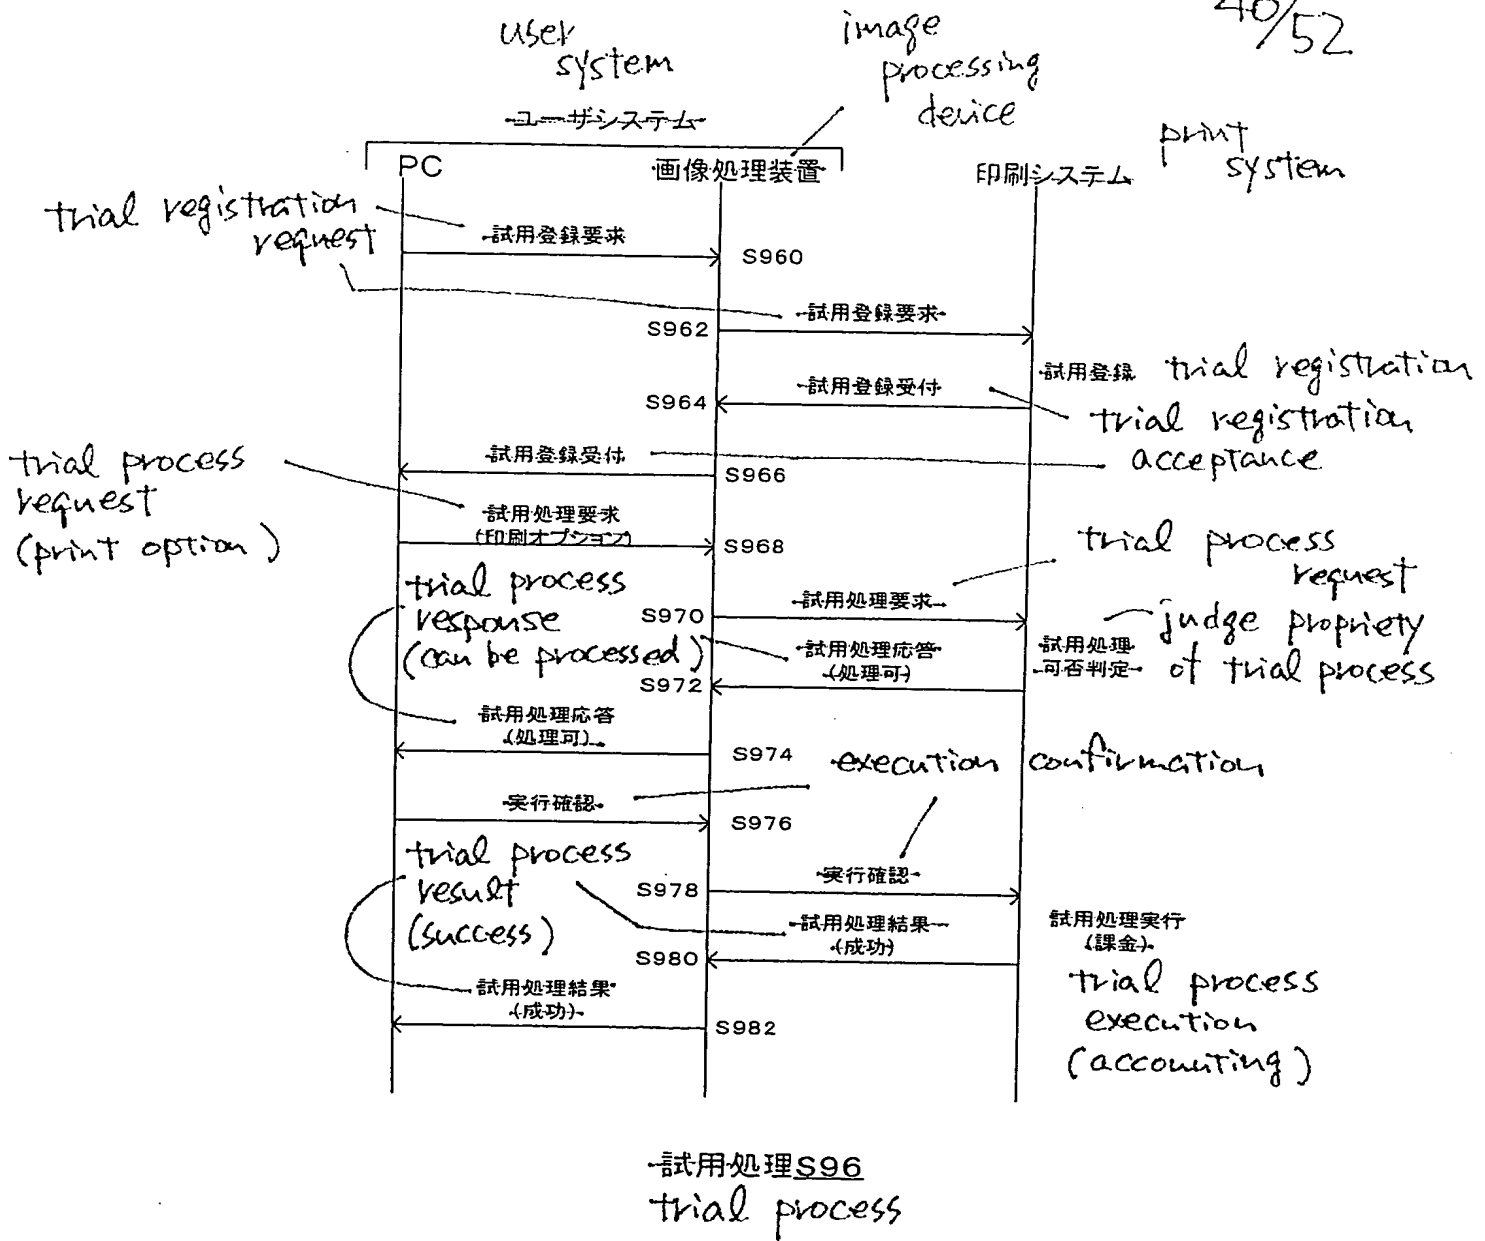 40/52
user
system
image
processing
device
ユーザシステム
print
system
PC
画像処理装置
印刷システム
trial registration
request
試用登録要求
S960
試用登録要求
S962
試用登録 trial registration
試用登録受付
S964
trial registration
acceptance
試用登録受付
S966
trial process
request
(print option)
試用処理要求
(印刷オプション)
S968
trial process
request
試用処理要求
S970
trial process
response
(can be processed)
試用処理応答
(処理可)
S972
試用処理
可否判定
judge propriety
of trial process
試用処理応答
(処理可)
S974
execution confirmation
実行確認
S976
実行確認
S978
trial process
result
(success)
試用処理結果
(成功)
S980
試用処理実行
(課金)
trial process
execution
(accounting)
試用処理結果
(成功)
S982
試用処理S96
trial process